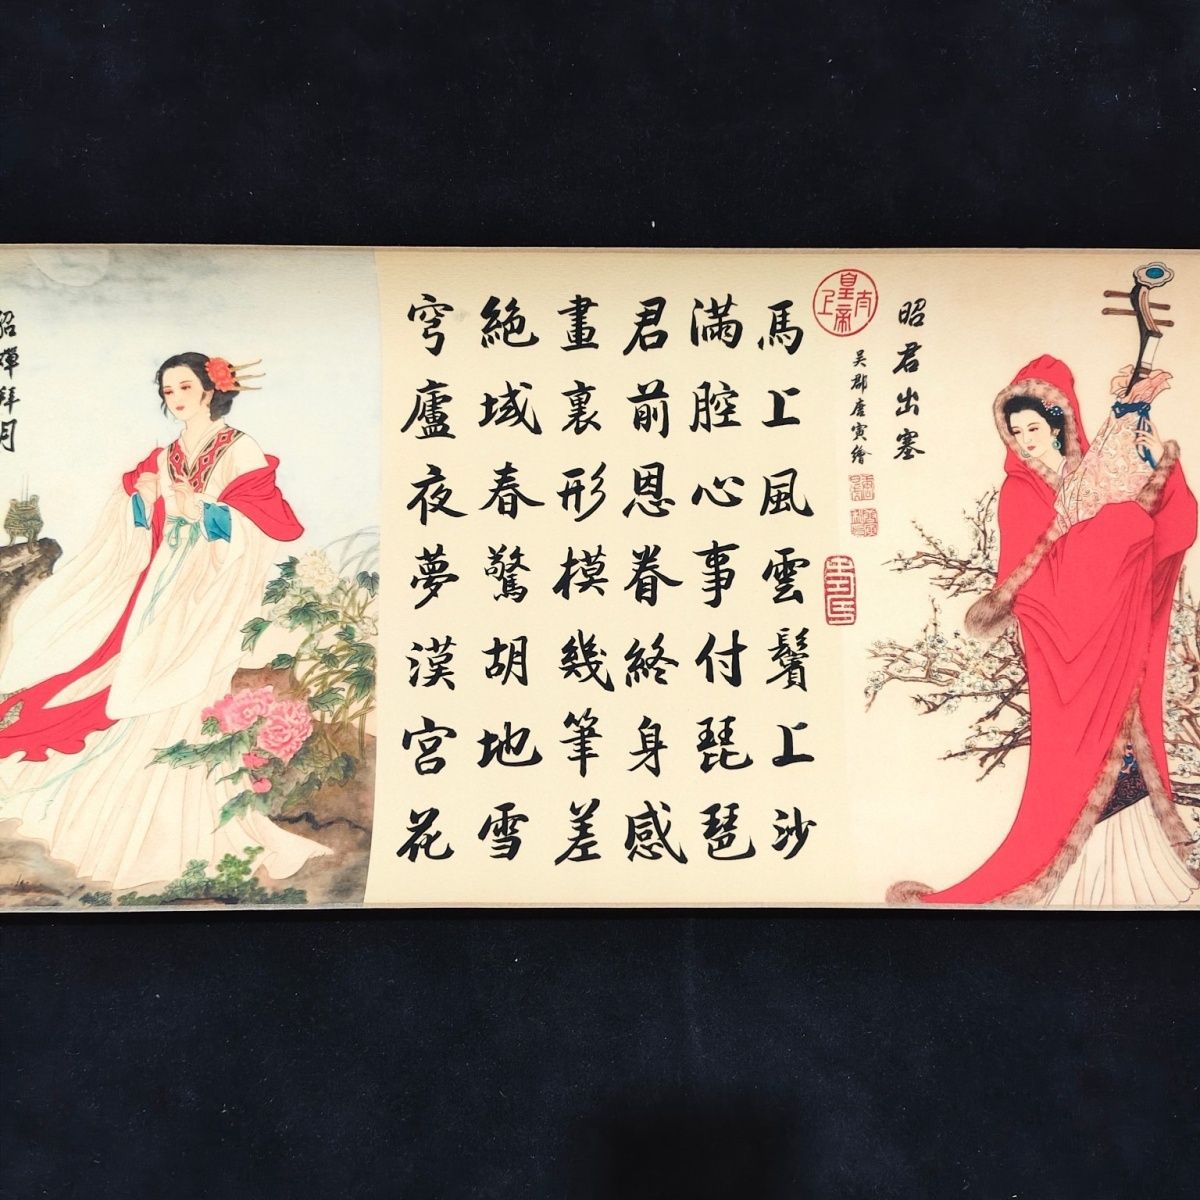 昭君出塞
吳郡唐寅繪
太上皇帝
馬上風雲鬢上沙
滿腔心事付琵琶
君前恩眷終身感
畫裏形模幾筆差
絕域春驚胡地雪
穹廬夜夢漢宮花
貂蟬拜月